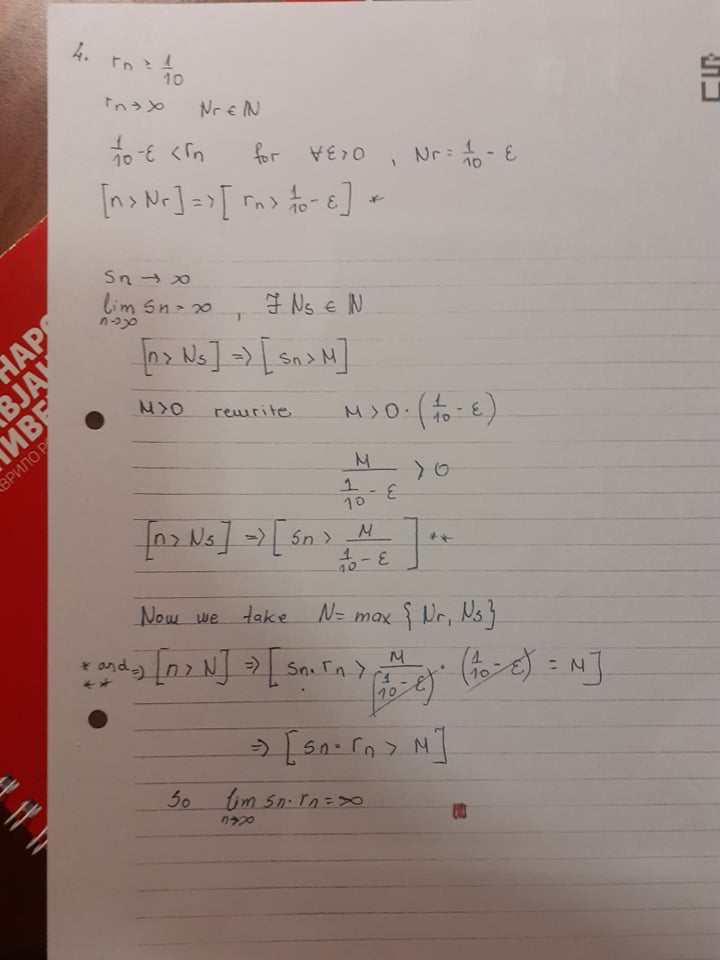 4. rn ≥ 1/10
rn → ∞ Nr ∈ ℕ
1/10 - ε < rn for ∀ε>0 , Nr = 1/10 - ε
[n > Nr] => [rn > 1/10 - ε] *
sn → ∞
lim n→∞ sn = ∞ , ∃ Ns ∈ ℕ
[n > Ns] => [sn > M]
M>0 rewrite M > 0 · (1/10 - ε)
M / (1/10 - ε) > 0
[n > Ns] => [sn > M / (1/10 - ε)] **
Now we take N = max {Nr, Ns}
* and ** => [n > N] => [sn · rn > M / (1/10 - ε) · (1/10 - ε) = M]
=> [sn · rn > M]
So lim n→∞ sn · rn = ∞